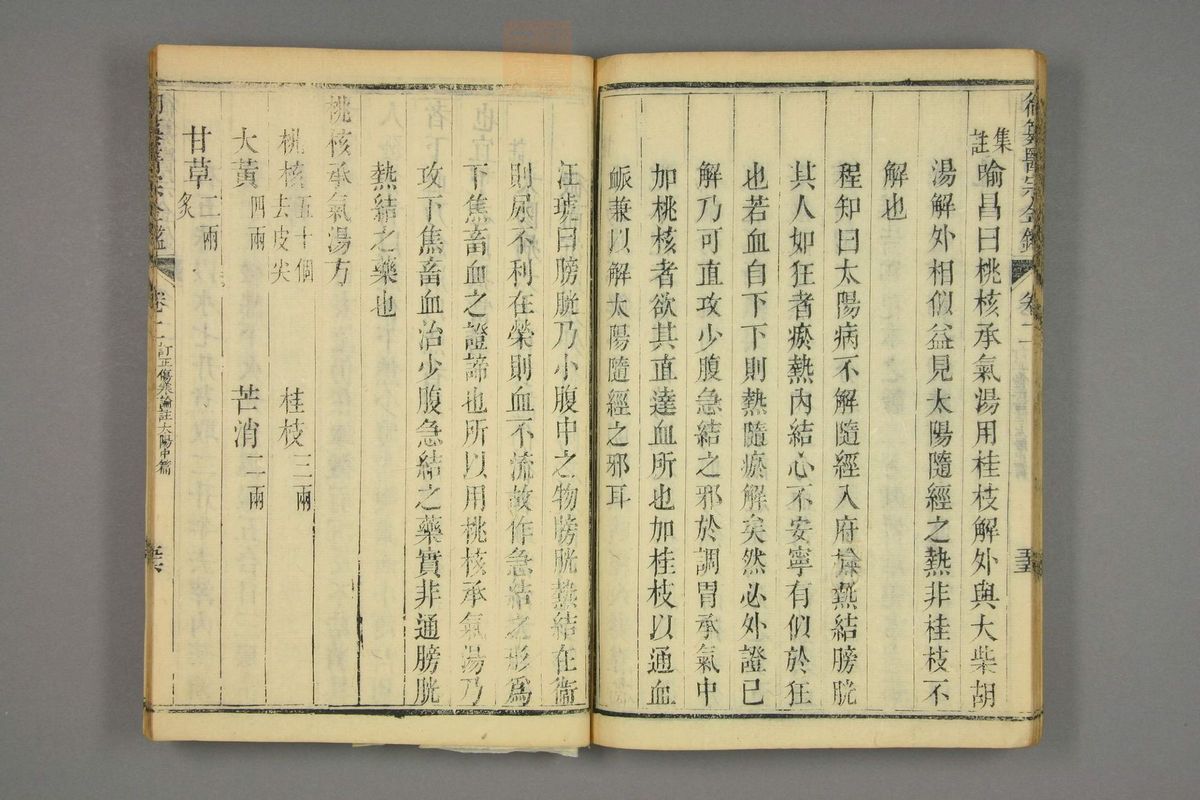 御纂醫宗金鑑 卷二
集註 喻昌曰桃核承氣湯用桂枝解外與大柴胡
湯解外相似益見太陽隨經之熱非桂枝不
解也
程知曰太陽病不解隨經入府故熱結膀胱
其人如狂者瘀熱內結心不安寧有似於狂
也若血自下下則熱隨瘀解矣然必外證已
解乃可直攻少腹急結之邪於調胃承氣中
加桃核者欲其直達血所也加桂枝以通血
脈兼以解太陽隨經之邪耳
汪琥曰膀胱乃小腹中之物膀胱熱結在衞
則尿不利在榮則血不流故作急結之形爲
下焦畜血之證諦也所以用桃核承氣湯乃
攻下焦畜血治少腹急結之藥實非通膀胱
熱結之藥也
桃核承氣湯方
桃核五十個去皮尖 桂枝三兩
大黃四兩 芒消二兩
甘草二兩炙
御纂醫宗金鑑 卷二 訂正傷寒論註太陽中篇